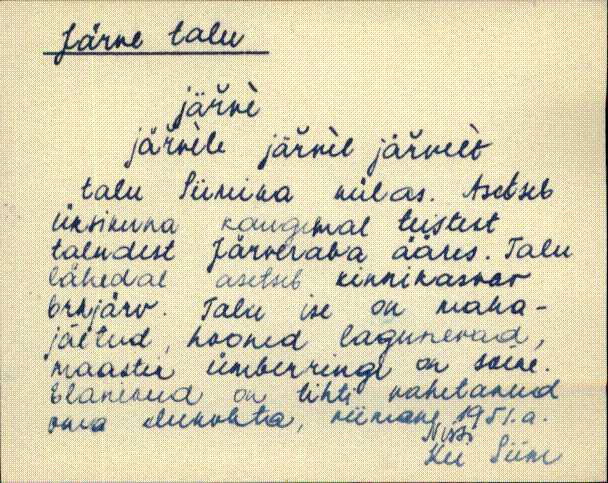 Järve talu
järvè
järvèle järvèl järvelt
talu Siimika külas. Asetseb
üksikuna kaugemal teistest
taludest Järveraba ääres. Talu
lähedal asetseb kinnikasvav
järv. Talu ise on maha-
jäetud, hooned lagunevad,
maastik ümberringi on soine.
Elanikud on tihti vahetanud
oma elukohta, viimane 1951.a.
Nissi
Siim